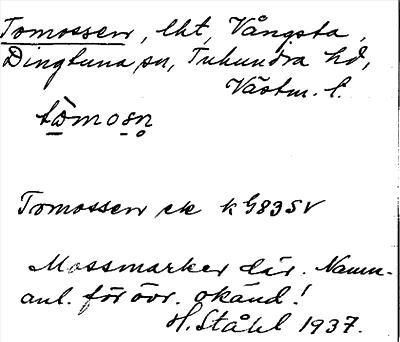 Tomossen, lht, Vångsta,
Dingtuna sn, Tuhundra hd,
Västm. l.
tòmosn̥
Tomossen ek kG83SV
Mossmarker där. Namn-
anl. för övr. okänd!
H. Ståhl 1937.